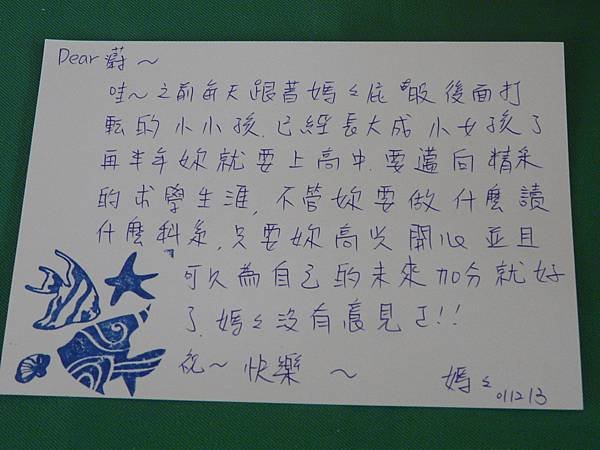 Dear 蔚~
哇~之前每天跟著媽々屁股後面打
転的小小孩.已經長大成小女孩了
再半年妳就要上高中.要邁向精采
的求學生涯,不管妳要做什麼讀
什麼科系,只要妳高兴開心並且
可以為自己的未來加分就好
了.媽々沒有意見!!
祝~快樂 ~
媽々 011213